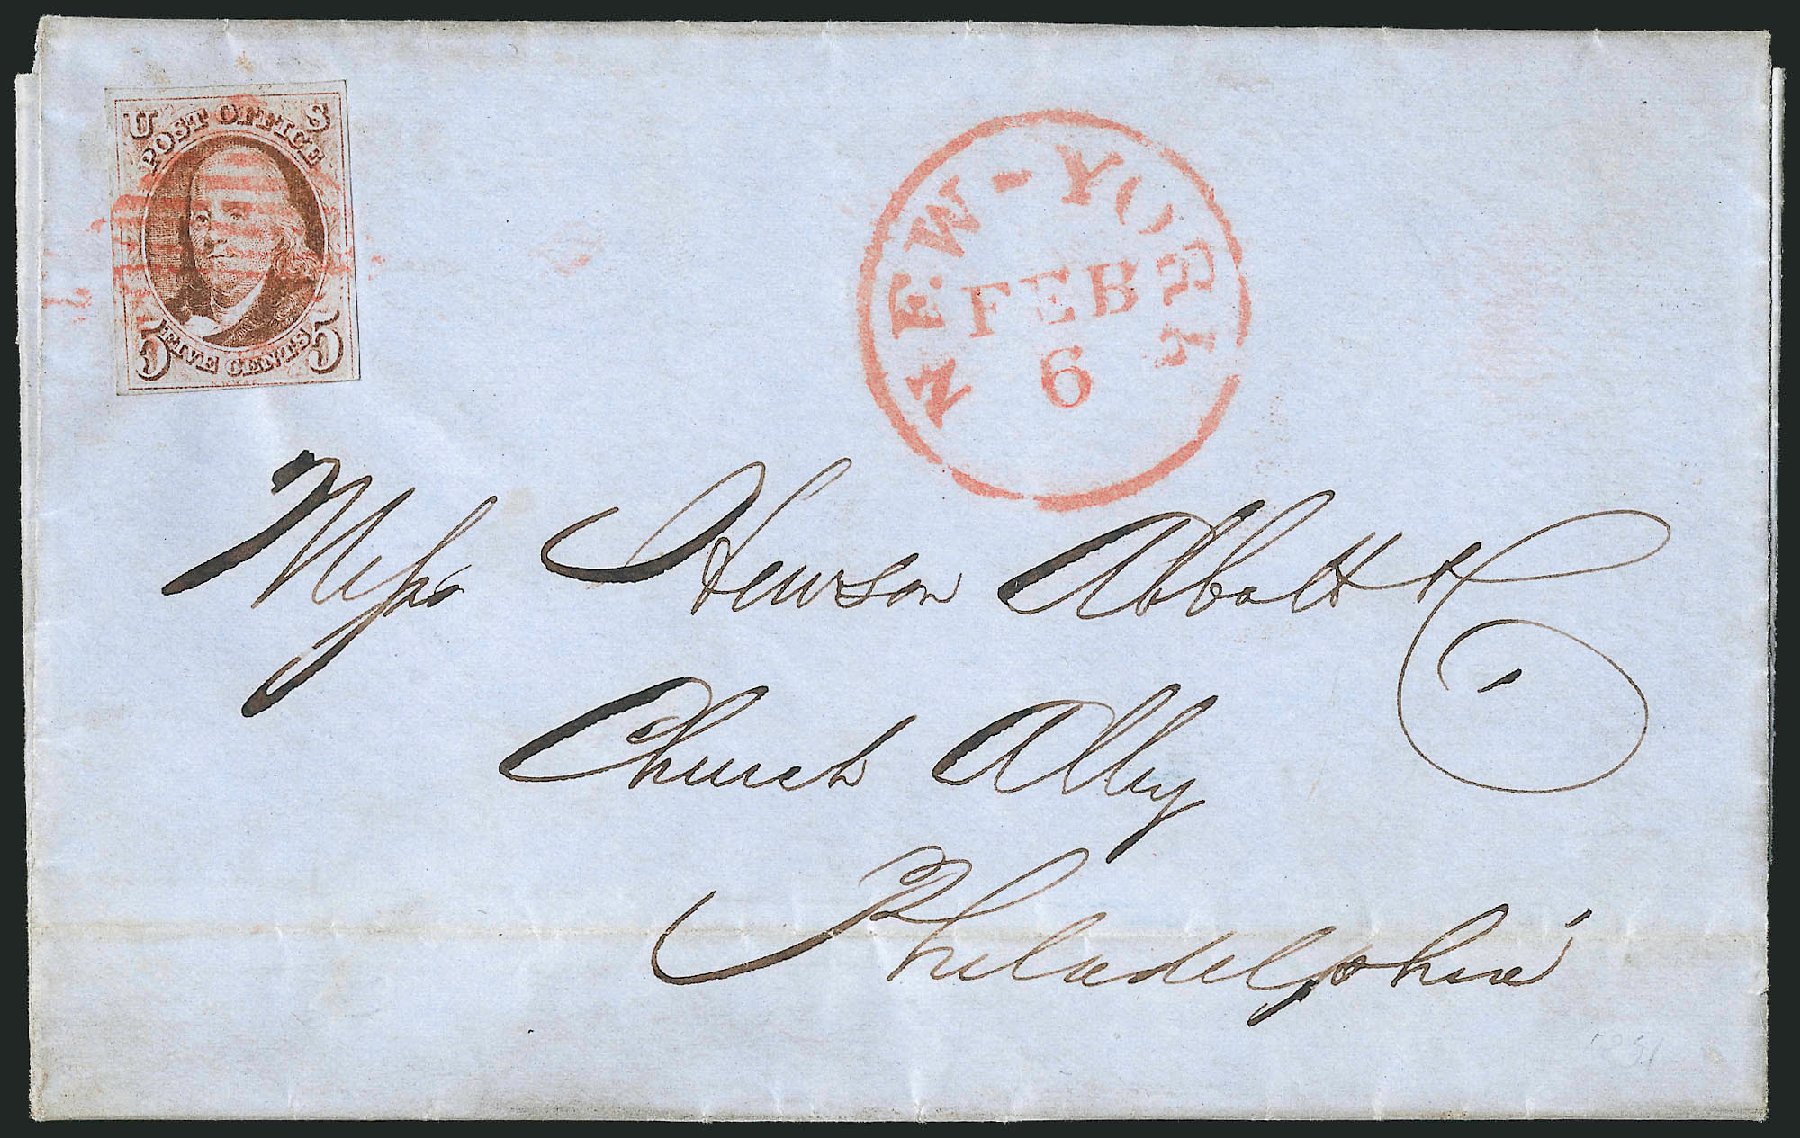 U S
POST OFFICE
5 5
FIVE CENTS
NEW-YORK
FEB
6
Messrs Hewson Abbott &
Church Alley
Philadelphia